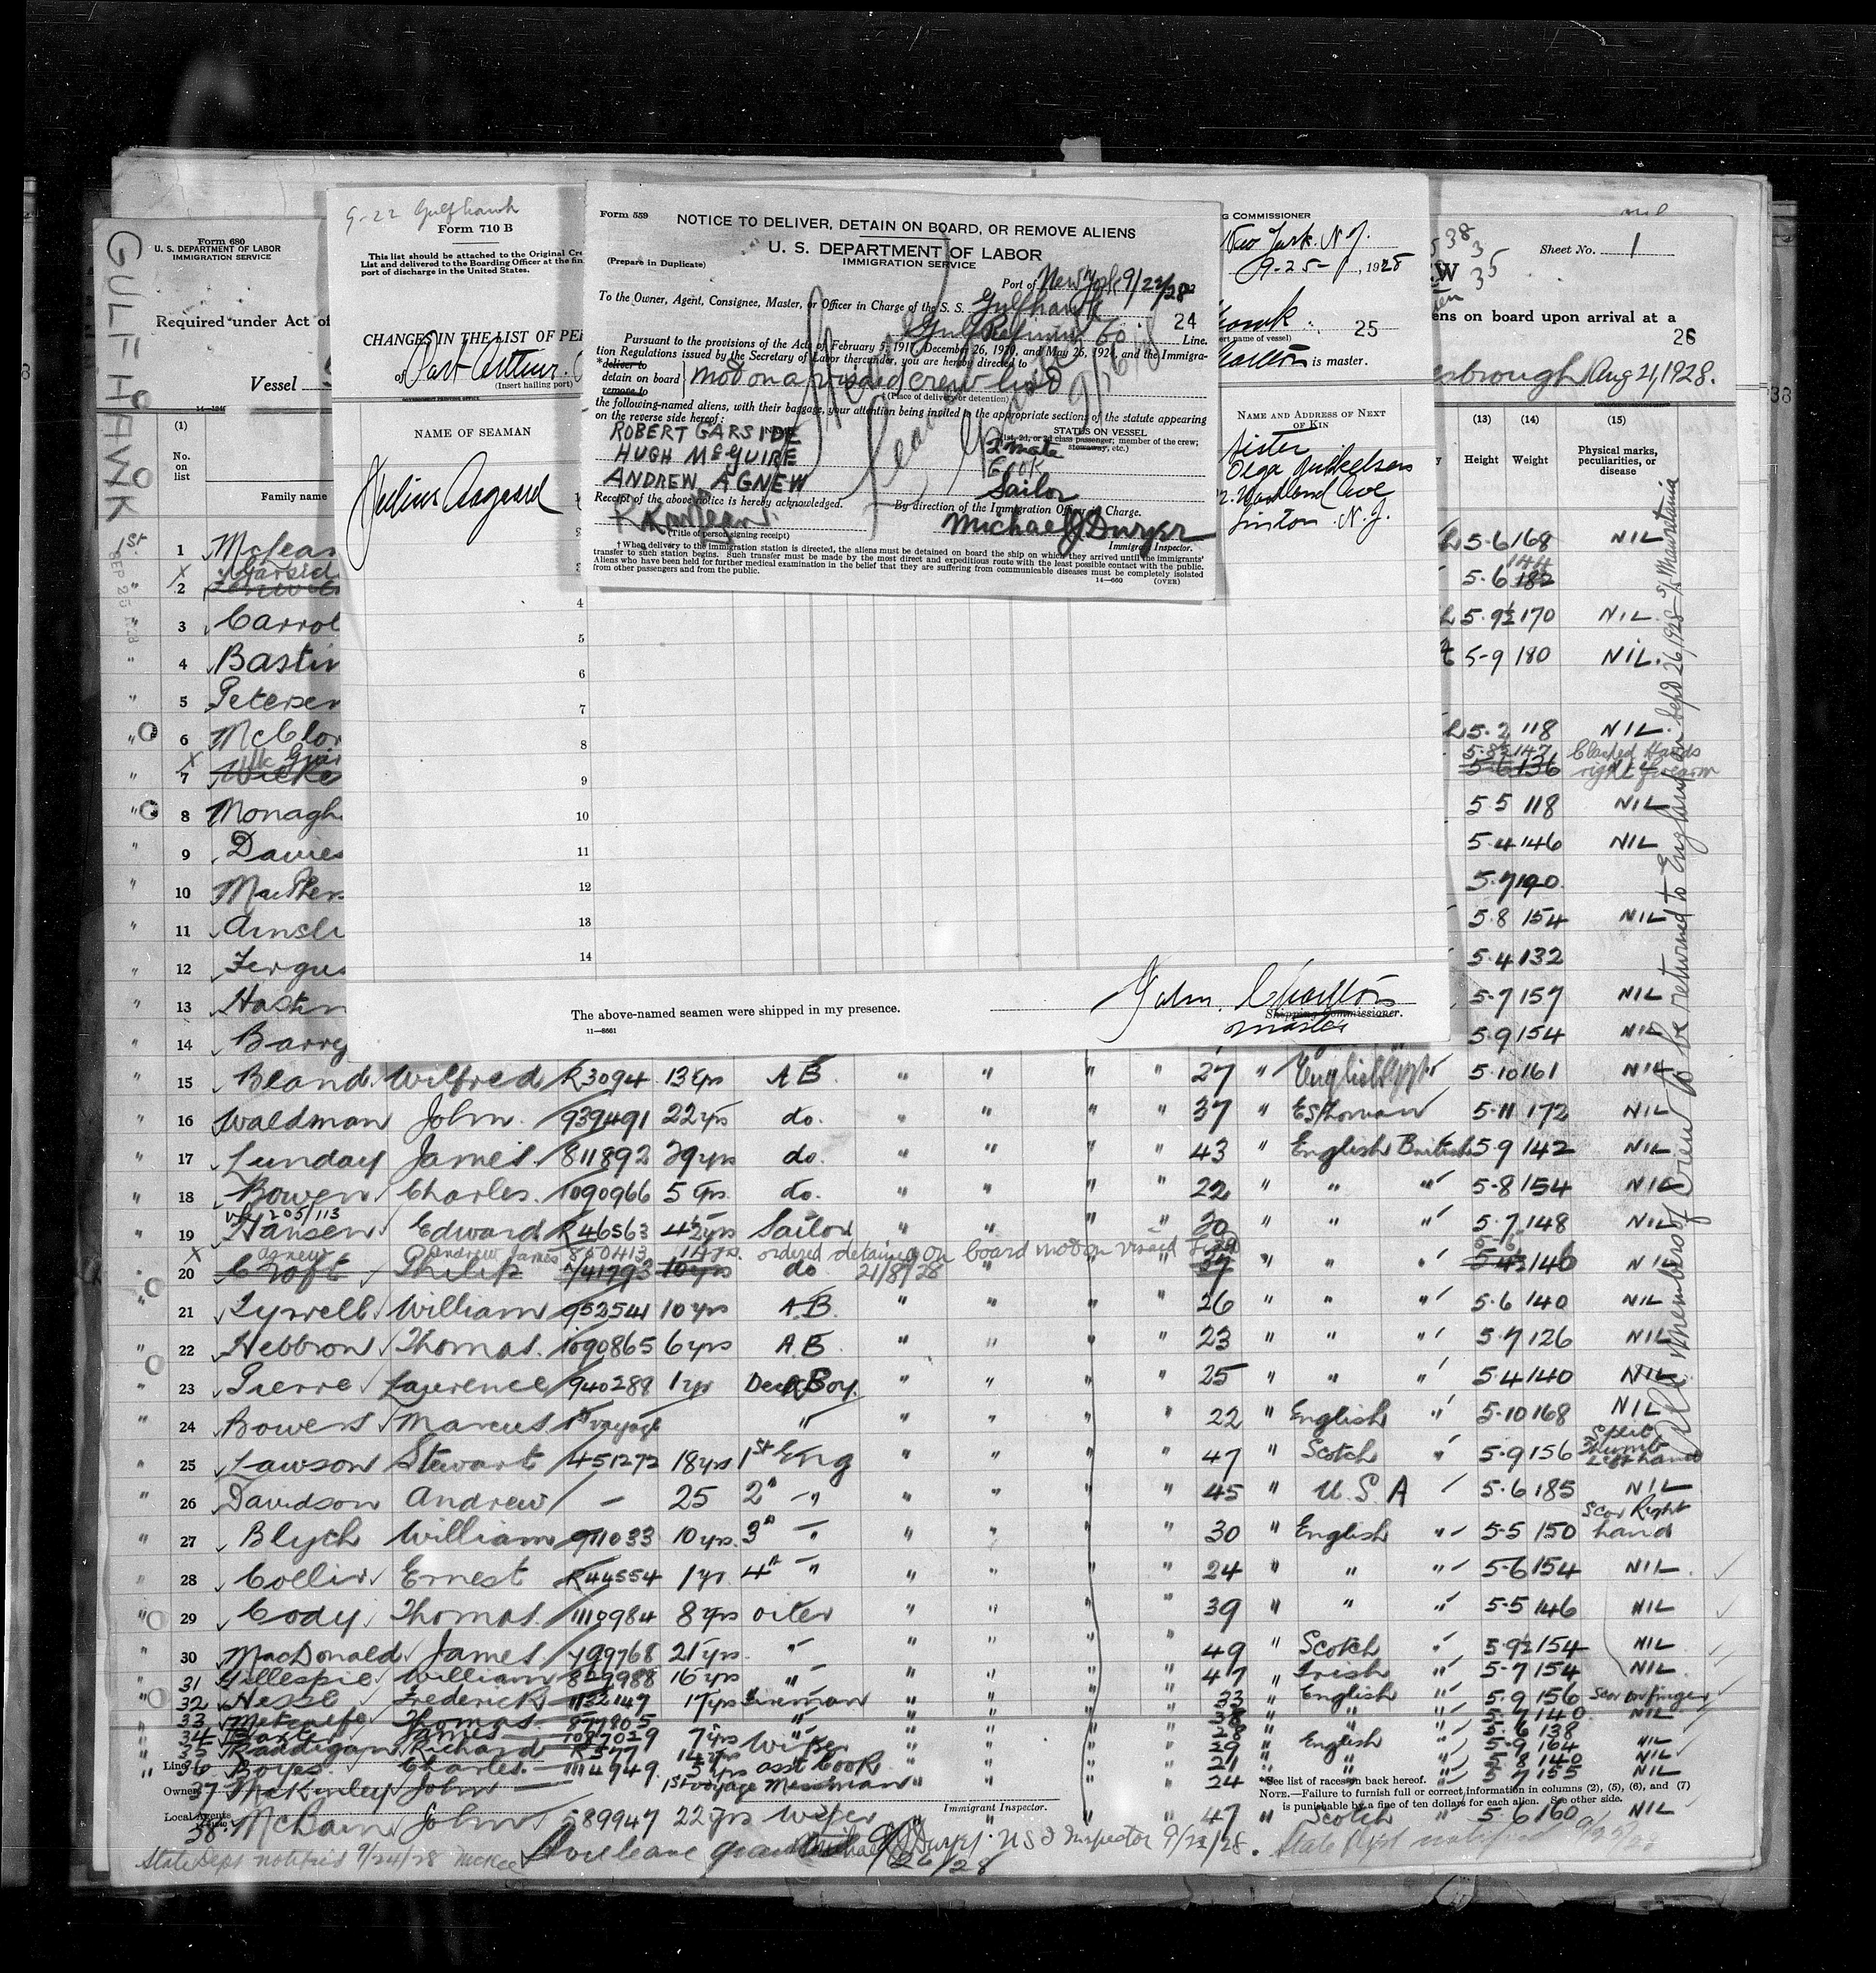 GULF HAWK
SEP 25 1928
Form 680
U. S. DEPARTMENT OF LABOR
IMMIGRATION SERVICE
Required under Act of
Vessel
(1)
No.
on
list
Family name
9-22 Gulfhawk
Form 710 B
This list should be attached to the Original Cre
List and delivered to the Boarding Officer at the fin
port of discharge in the United States.
CHANGES IN THE LIST OF PE
of Port Arthur.
(Insert hailing port)
NAME OF SEAMAN
Julius Aagaard
Form 559
NOTICE TO DELIVER, DETAIN ON BOARD, OR REMOVE ALIENS
U. S. DEPARTMENT OF LABOR
IMMIGRATION SERVICE
(Prepare in Duplicate)
Port of New York 9/22/28
To the Owner, Agent, Consignee, Master, or Officer in Charge of the S. S. Gulfhawk
Gulf Refining Co. Line. 24
Pursuant to the provisions of the Acts of February 5, 1917, December 26, 1920, and May 26, 1924, and the Immigra-
tion Regulations issued by the Secretary of Labor thereunder, you are hereby directed to
*deliver to
detain on board
remove to
not on a visaed crew list
(Place of delivery or detention)
the following-named aliens, with their baggage, your attention being invited to the appropriate sections of the statute appearing
on the reverse side hereof:
STATUS ON VESSEL
(1st, 2d, or 3d class passenger; member of the crew;
stowaway, etc.)
ROBERT GARSIDE 2 mate
HUGH McGUIRE Cook
ANDREW AGNEW Sailor
Receipt of the above notice is hereby acknowledged.
By direction of the Immigration Officer in Charge.
Michael J Dwyer
(Title of person signing receipt)
Immigrant Inspector.
† When delivery to the immigration station is directed, the aliens must be detained on board the ship on which they arrived until the immigrants'
transfer to such station begins. Such transfer must be made by the most direct and expeditious route with the least possible contact with the public.
Aliens who have been held for further medical examination in the belief that they are suffering from communicable diseases must be completely isolated
from other passengers and from the public.
14—660 (OVER)
G COMMISSIONER
New York. N.Y.
9-25-, 1928
hawk 25
ert name of vessel)
Charlton is master.
NAME AND ADDRESS OF NEXT
OF KIN
Sister
Olga
Woodland Ave
Linton N.J.
Sheet No. 1
ens on board upon arrival at a
26
esbrough, Aug 21, 1928.
(13) (14) (15)
Height Weight Physical marks,
peculiarities, or
disease
1st 1 McLean 5-6 168 NIL
X Garside 144
" 2 5-6 182
" 3 Carrol 5-9½ 170 NIL
" 4 Bastin 5-9 180 NIL.
" 5 Petersen
" 6 McClor 5-2 118 NIL.
X McGuir 5-8½ 147 Clasped Hands
" 7 Wicke 5-6 136 right forearm
" 8 Monagh 5 5 118 NIL
" 9 Davies 5-4 146 NIL
" 10 MacPhers 5-7 190
" 11 Ainsli 5-8 154 NIL
" 12 Fergus 5-4 132
" 13 Hastin 5-7 157 NIL
" 14 Barry 5-9 154 NIL
4
5
6
7
8
9
10
11
12
13
14
The above-named seamen were shipped in my presence.
John. Charlton
Shipping Commissioner.
master
11—8661
" 15 Bland Wilfred R3094 13 yrs AB " " " " 27 " English 5-10 161 NIL
" 16 Waldman John. 939491 22 yrs do. " " " " 37 " Esthonian 5-11 172 NIL
" 17 Lunday James. 811892 29 yrs do. " " " " 43 " English British 5-9 142 NIL
" 18 Bowen Charles. 1090966 5 yrs. do. " " " " 22 " " " 5-8 154 NIL
" 19 Hansen Edward R46563 4½ yrs Sailor " " " " 30 " " " 5-7 148 NIL
X Agnew Andrew James 850413 14 yrs. ordered detained on board not on visaed 5-6
" 20 Croft Philip 10 yrs do 21/8/28 " " " 37 " " " 146 NIL
" 21 Tyrrell William 952541 10 yrs A.B. " " " " 26 " " " 5-6 140 NIL
" 22 Hebbron Thomas. 1090865 6 yrs A.B. " " " " 23 " " " 5-7 126 NIL
" 23 Pierre Lawrence 940288 1 yr Deck Boy. " " " " 25 " " " 5-4 140 NIL
" 24 Bowers Marcus 1st voyage " " " " " 22 " English " 5-10 168 NIL
" 25 Lawson Stewart 451272 18 yrs 1st Eng " " " " 47 " Scotch " 5-9 156 Split Thumb Left hand
" 26 Davidson Andrew — 25 2n " " " " " 45 " U.S.A 5-6 185 NIL
" 27 Blyth William 911033 10 yrs. 3n " " " " " 30 " English " 5-5 150 Scar Right hand
" 28 Collis Ernest R44554 1 yr. 4n " " " " " 24 " " " 5-6 154 NIL
" 29 Cody Thomas. 1110984 8 yrs oiler " " " " 39 " " " 5-5 146 NIL
" 30 MacDonald James. 799768 21 yrs. " " " " " 49 " Scotch " 5-9½ 154 NIL
" 31 Gillespie William 829988 16 yrs " " " " " 47 " Irish " 5-7 154 NIL
" 32 Hessl Frederick 1132147 17 yrs Fireman " " " " 33 " English " 5-9 156 Scar on finger
" 33 Metcalfe Thomas. 877805 " " " " " " " 5-7 140 NIL
" 34 James 1087029 7 yrs " " " " " 28 " " 5-6 138
" 35 Raddigan Richard R577 14 yrs Wiper " " " " 29 " English " 5-9 164 NIL
" 36 Boyes Charles. 1114949. 5 yrs asst Cook " " " " 21 " " " 5-8 140 NIL
37 McKinley John — 1st voyage Messman " " " 24 " " 5-7 155 NIL
38. McBain John 589947 22 yrs Wiper " " 47 " Scotch " 5-6 160 NIL
Line
Owners
Local Agents
Immigrant Inspector.
*See list of races on back hereof.
NOTE.—Failure to furnish full or correct information in columns (2), (5), (6), and (7)
is punishable by a fine of ten dollars for each alien. See other side.
State Dept notified 9/24/28 McKee
Shoreleave granted Michael J Dwyer. U S I Inspector 9/22/28.
9/26/28
State Dept notified 9/25/28
All members of crew to be returned to England on Sept 26, 1928 SS Mauretania